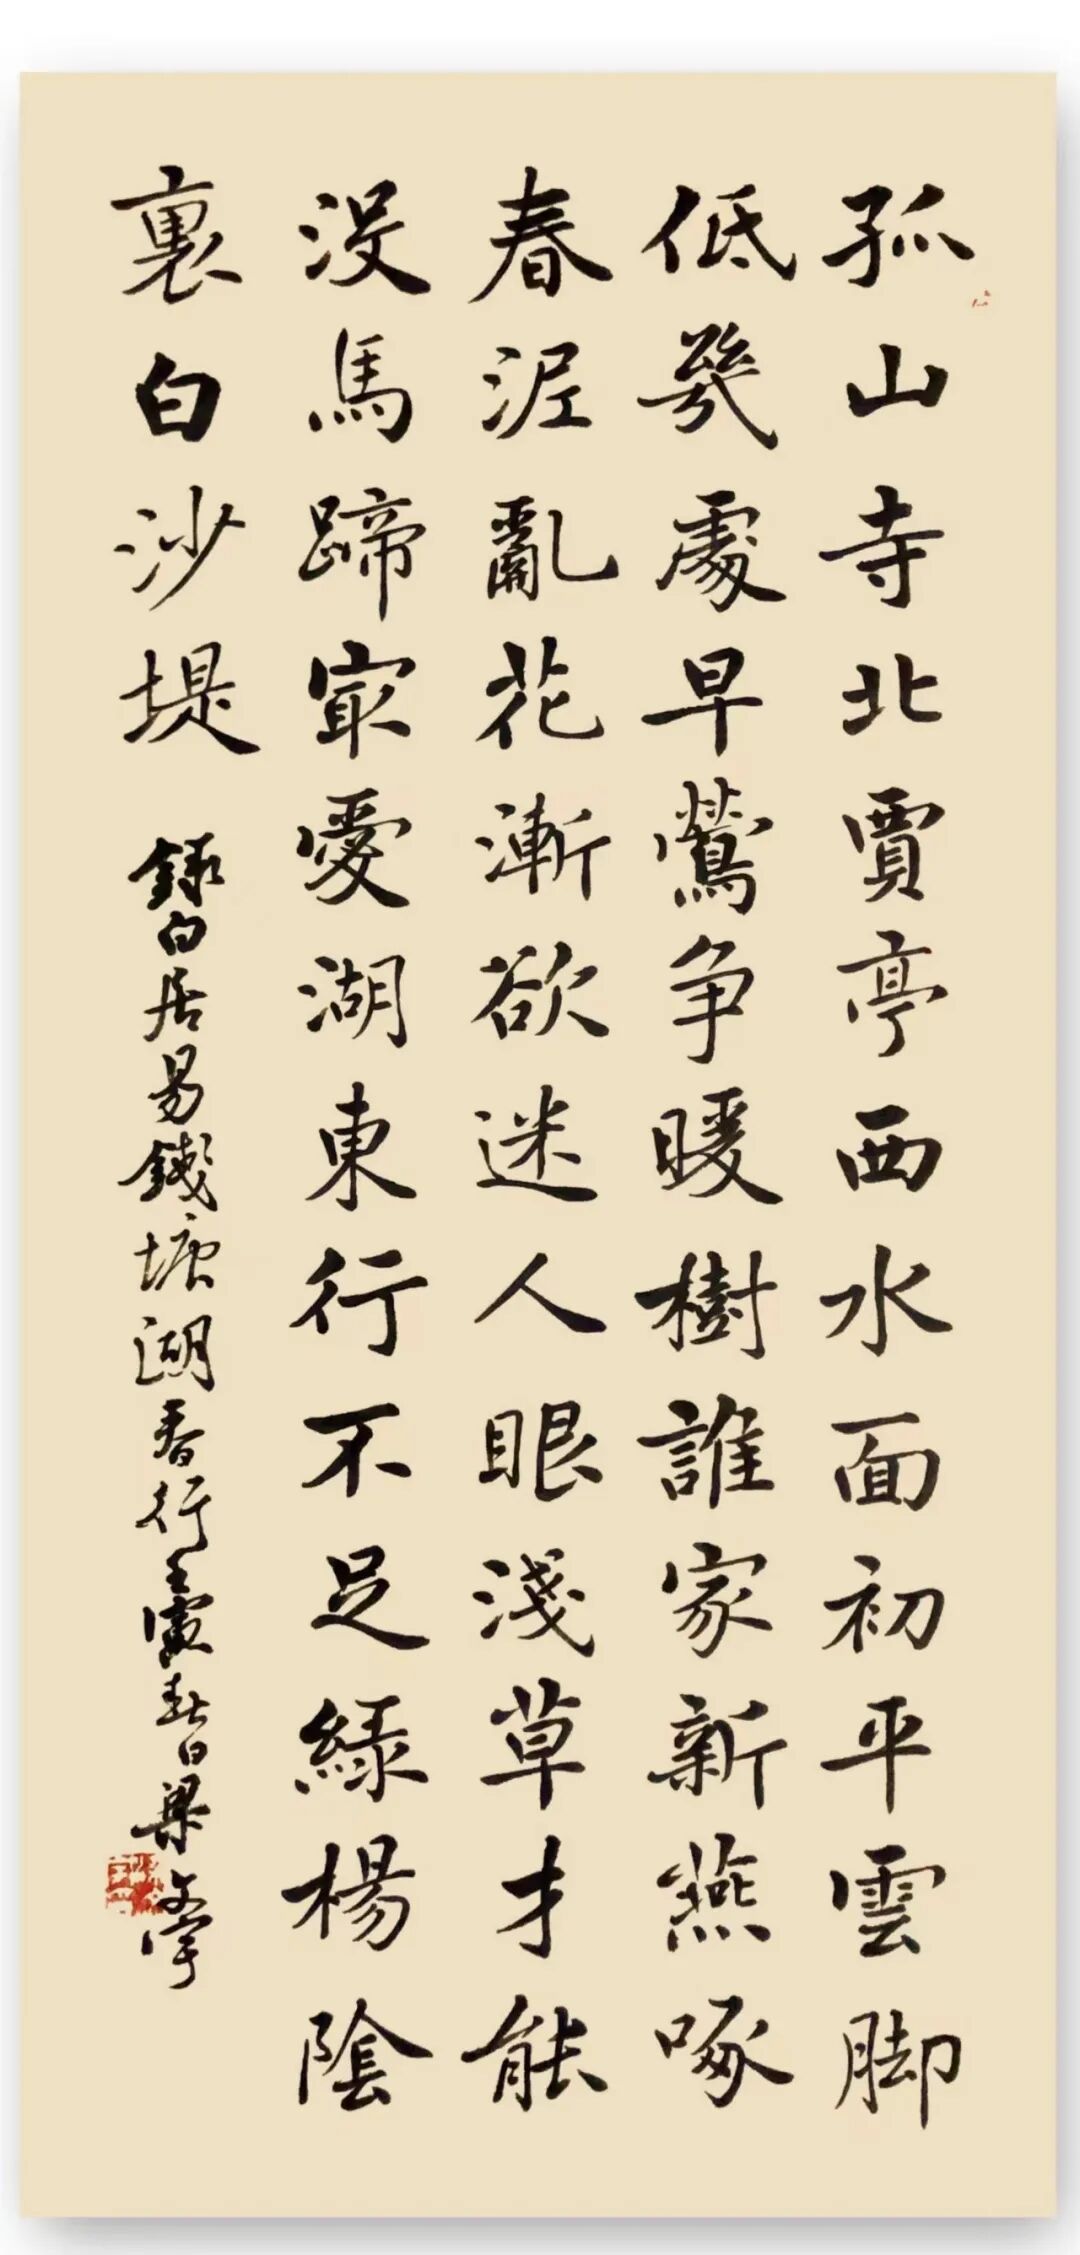 孤山寺北賈亭西水面初平雲脚
低幾處早鶯争暖樹誰家新燕啄
春泥亂花漸欲迷人眼淺草才能
没馬蹄寂愛湖東行不足綠楊陰
裏白沙堤
錄白居易錢塘湖春行壬寅春日梁文宇